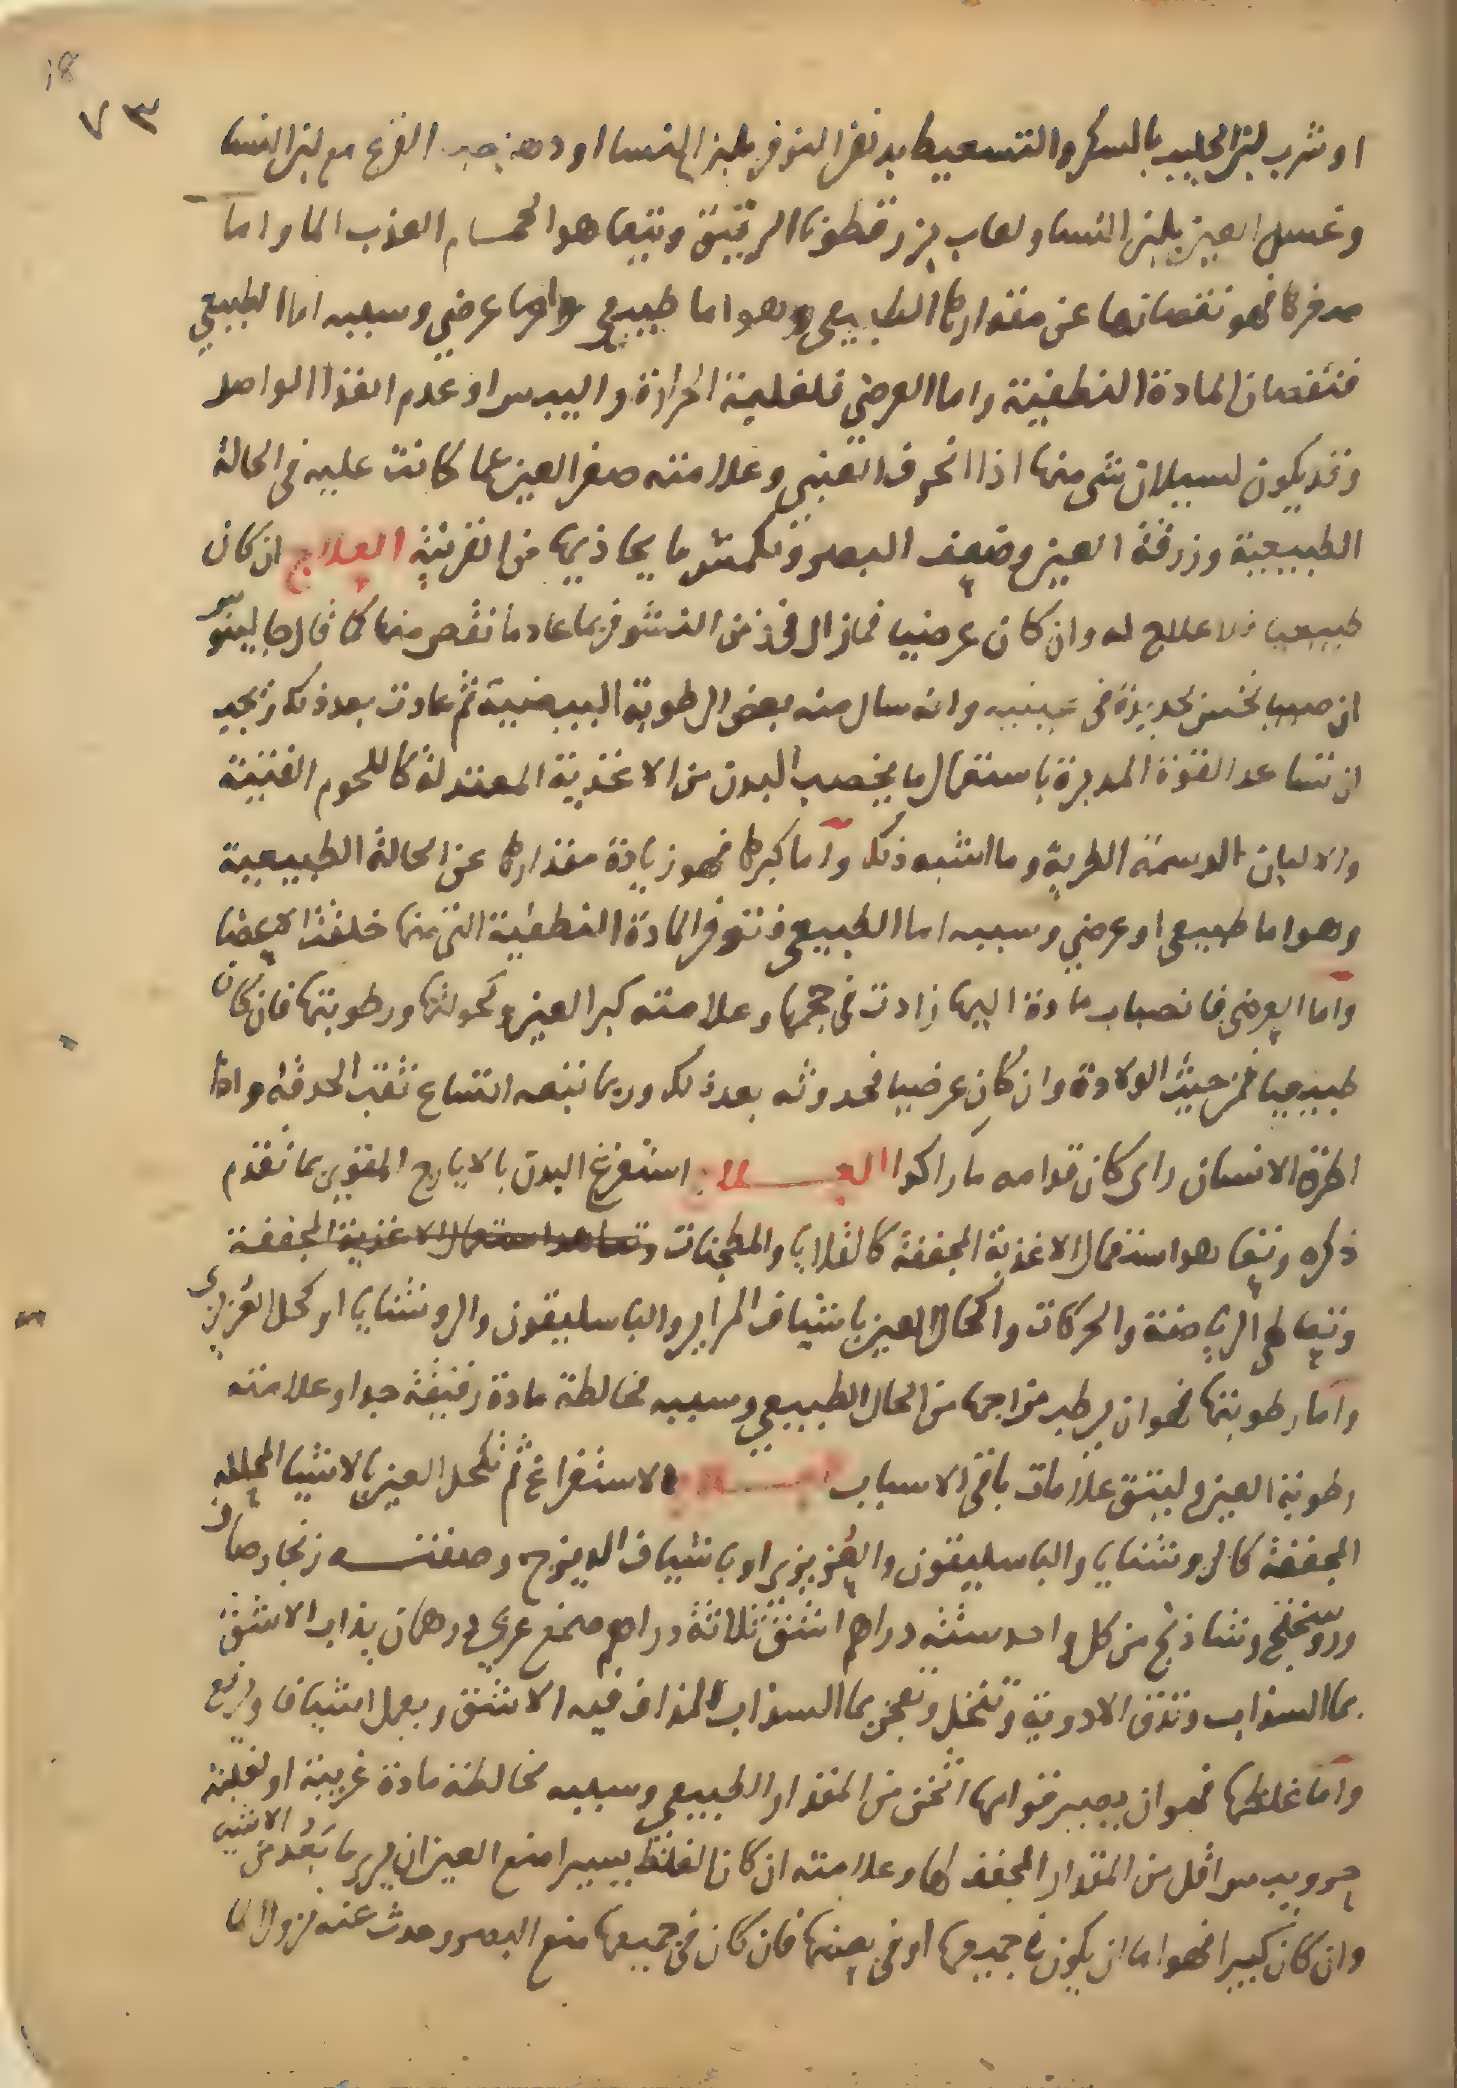 18
٧٣
او شرب لبن الحليب بالسكر والتسعيط بدهن النوفر بلبن النسا او دهن حب القرع مع لبن النسا
وغسل العين بلبن النسا ولعاب بزرقطونا الرقيق وتتعاهد الحمام العذب الما واما
صغرها فهو نقصانها عن مقدارها الطبيعي وهو اما طبيعي واما عرضي وسببه اما الطبيعي
فنقصان المادة النطفية واما العرضي فلغلبة الحرارة واليبس او عدم الغذا الواصل
وقد يكون لسيلان شي منها اذا انخرق العنبي وعلامته صغر العين عما كانت عليه في الحالة
الطبيعية وزرقة العين وضعف البصر وتكمش ما يحاذيها من القرنية العلاج ان كان
طبيعيا فلا علاج له وان كان عرضيا فمازال في زمن النشو فربما عاد ما نقص منها كما قال جالينوس
ان صبيا نخس بحديدة في عينيه وانه سال منه بعض الرطوبة البيضية ثم عادت بعد ذلك فيجب
ان تساعد القوة المدبرة باستعمال ما يخصب البدن من الاغذية المعتدلة كاللحوم الفتية
والالبان الدسمة الطرية وما اشبه ذلك واما كبرها فهو زيادة مقدارها عن الحالة الطبيعية
وهو اما طبيعي او عرضي وسببه اما الطبيعي فتوفر المادة النطفية التي منها خلقت الاعضا
واما العرضي فانصباب مادة اليها زادت في حجمها وعلامته كبر العين وكحولتها ورطوبتها فان كان
طبيعيا فمن حيث الولادة وان كان عرضيا فحدوثه بعد ذلك وربما تبعه اتساع ثقب الحدقة واذا
اطرق الانسان راى كان قدامه ما راكدا العلاج استفرغ البدن بالايارج المقوي بما تقدم
ذكره وتتعاهد استعمال الاغذية المجففة كالقلايا والمطجنات وتتعاهد استعمال الاغذية المجففة
وتتعاطى الرياضة والحركات واكحال العين باشياف المراير والباسليقون والروشنايا او كحل العزيزي
واما رطوبتها فهو ان يرطب مزاجها من الحال الطبيعي وسببه مخالطة مادة رقيقة جدا وعلامته
رطوبة العين وليتق علامات باقي الاسباب العلاج الاستفراغ ثم تكحل العين بالاشيا المحللة
المجففة كالروشنايا والباسليقون والعزيزي او باشياف الديزج وصفته زنجار صاف
وروسختج وشاذنج من كل واحد ستة دراهم اشق ثلاثة دراهم صمغ عربي درهمان يذاب الاشق
بما السذاب وتدق الادوية وتنخل وتعجن بما السذاب المذاف فيه الاشق ويعمل اشياف ويرفع
واما غلظها فهو ان يصير قوامها اثخن من المقدار الطبيعي وسببه مخالطة مادة غريبة او لغلبة
حر ويبس اقل من المقدار المجفف لها وعلامته ان كان الغلظ يسيرا منع العين ان يرى ما بعد من الاشيا
وان كان كبيرا فهو اما ان يكون في جميعها او في بعضها فان كان في جميعها منع البصر وحدث عنه نزول الما